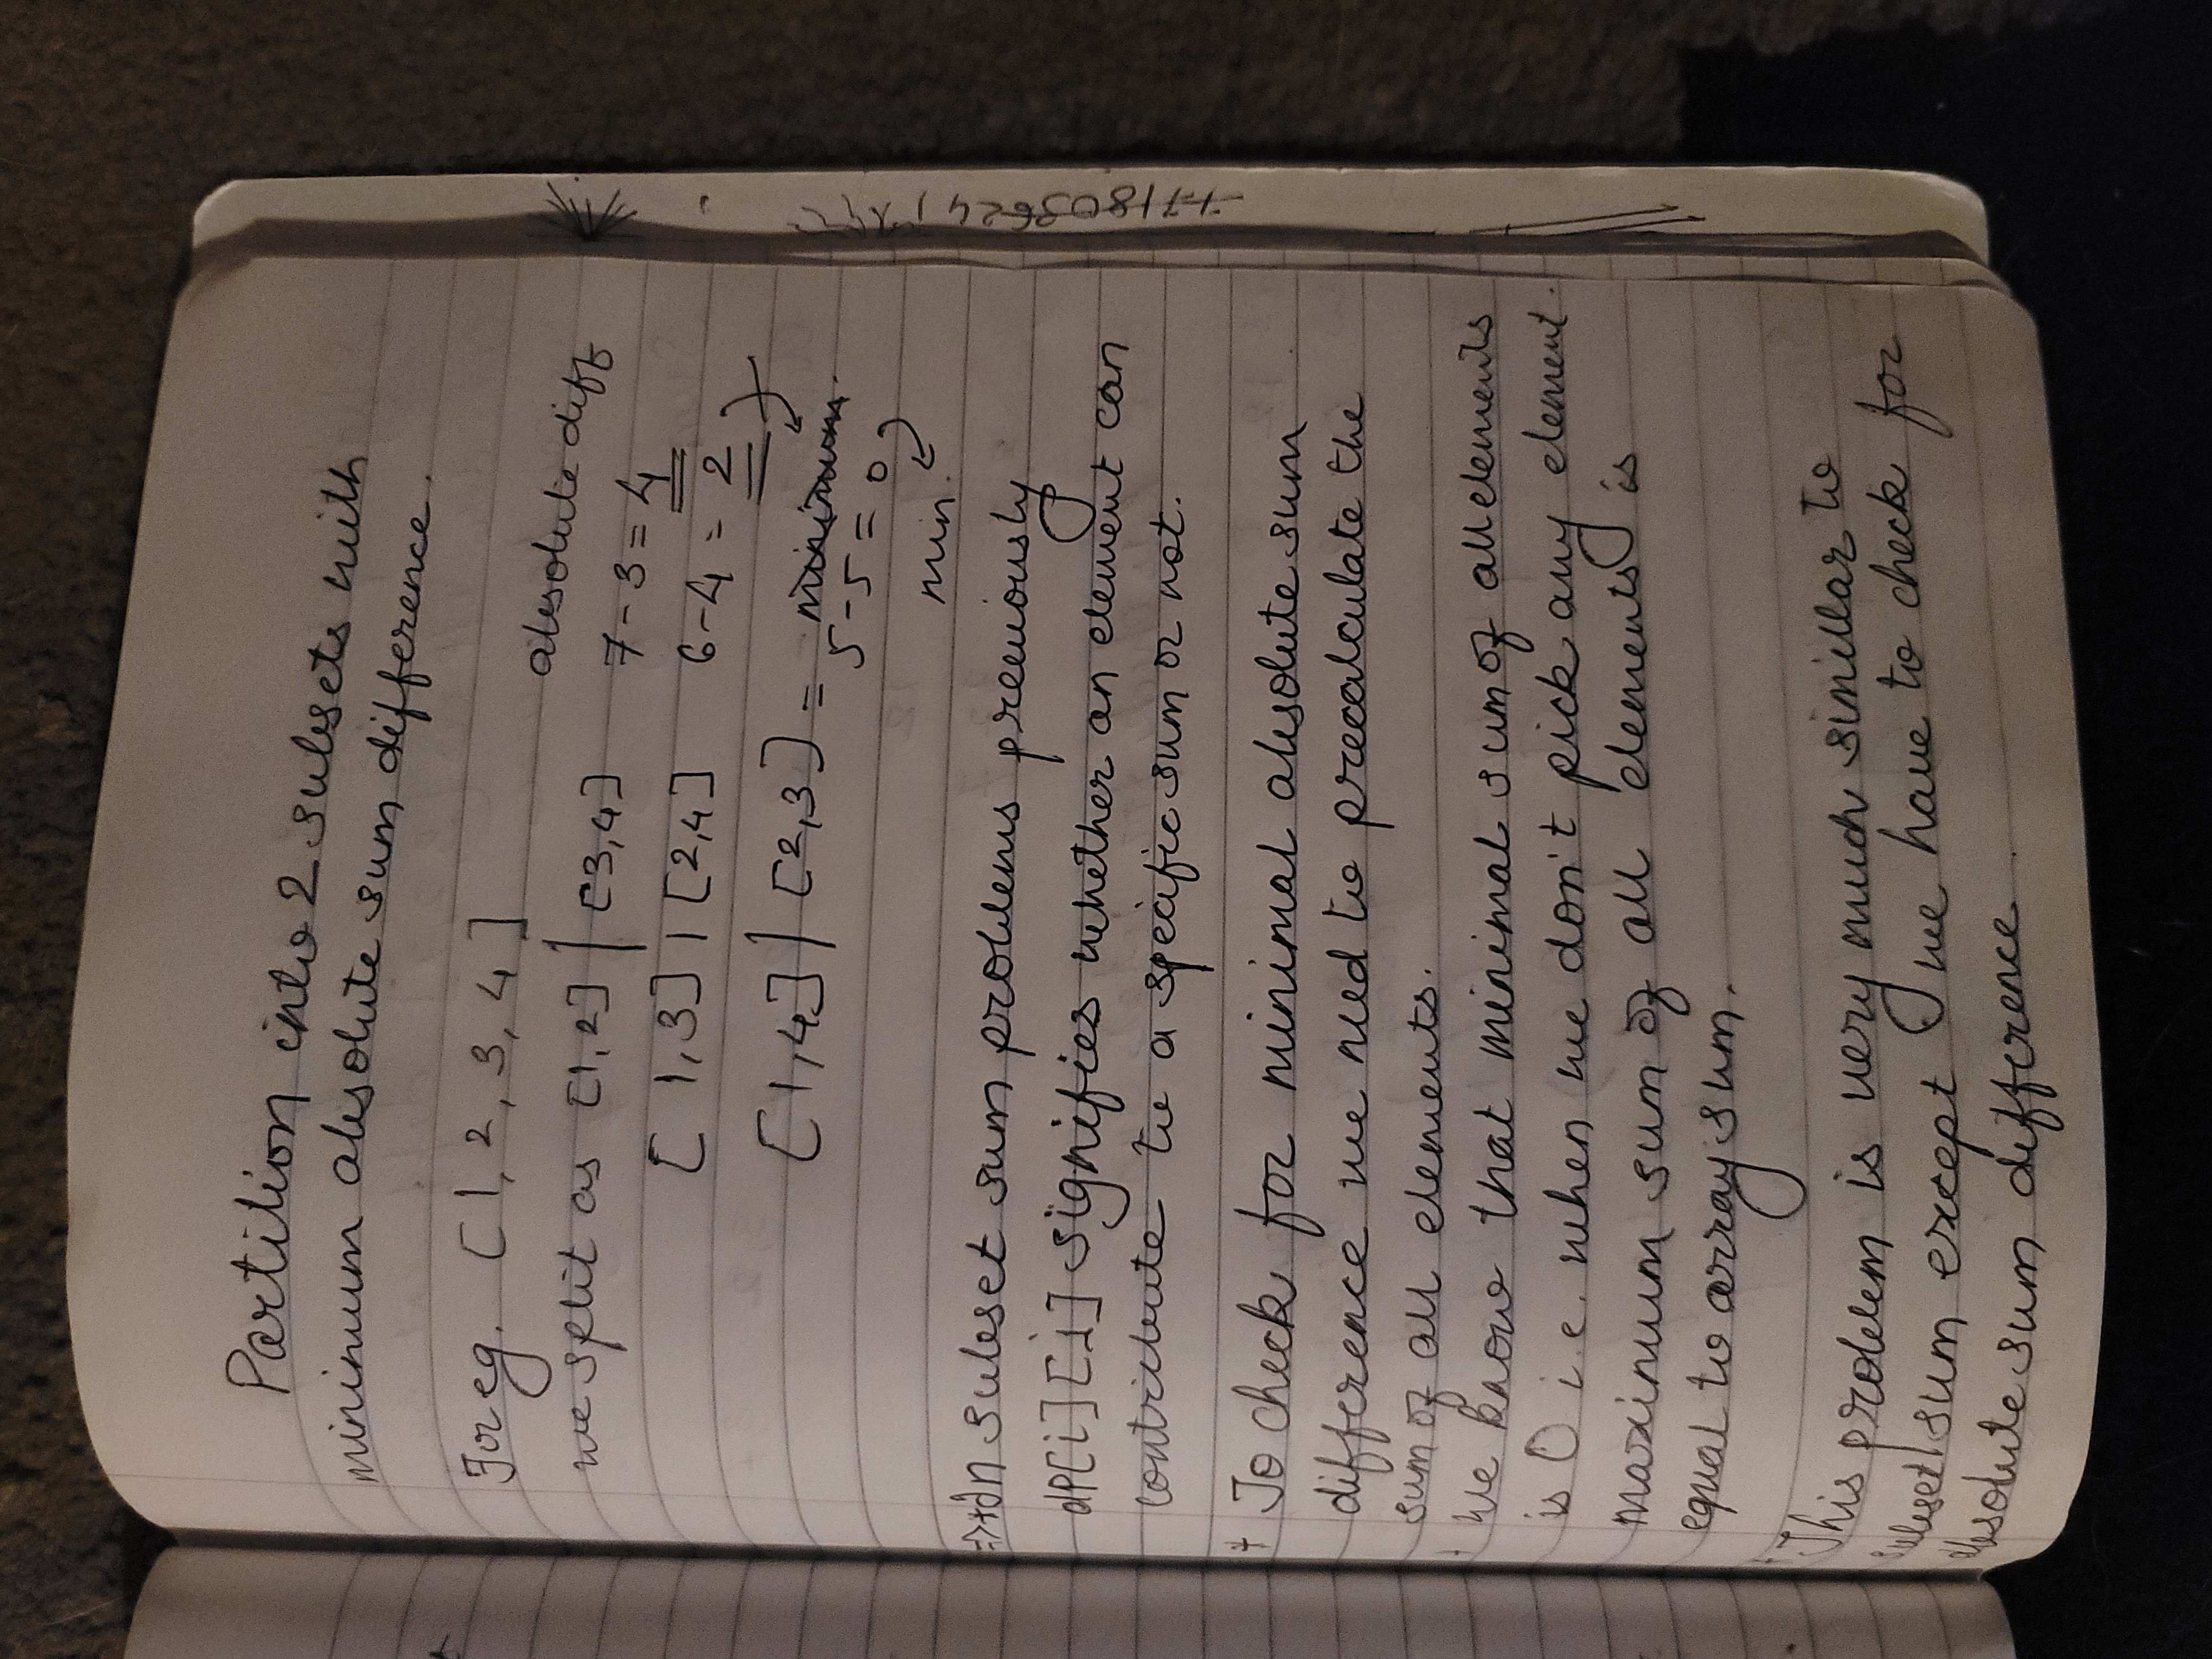 Partition into 2 subsets with
minimum absolute sum difference.
For eg. [1, 2, 3, 4]
absolute diff
we split as [1,2] | [3,4] 7-3=4
[1,3] | [2,4] 6-4=2
[1,4] | [2,3] = minimum.
5-5=0
min.
=>*In subset sum problems previously
dp[i][j] signifies whether an element can
contribute to a specific sum or not.
* To check for minimal absolute sum
difference we need to precalculate the
sum of all elements.
We know that minimal sum of all elements
is 0 i.e. when we don't pick any element.
maximum sum of all elements is
equal to array sum.
This problem is very much simillar to
subset sum except we have to check for
absolute sum difference.